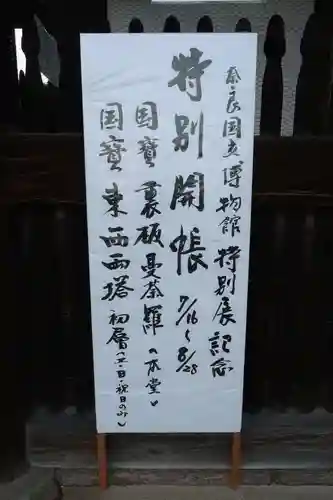 奈良国立博物館 特別展記念
特別開帳 7/16〜8/28
国寶 裏板曼荼羅(本堂)
国寶 東西両塔 初層(土・日・祝日のみ)